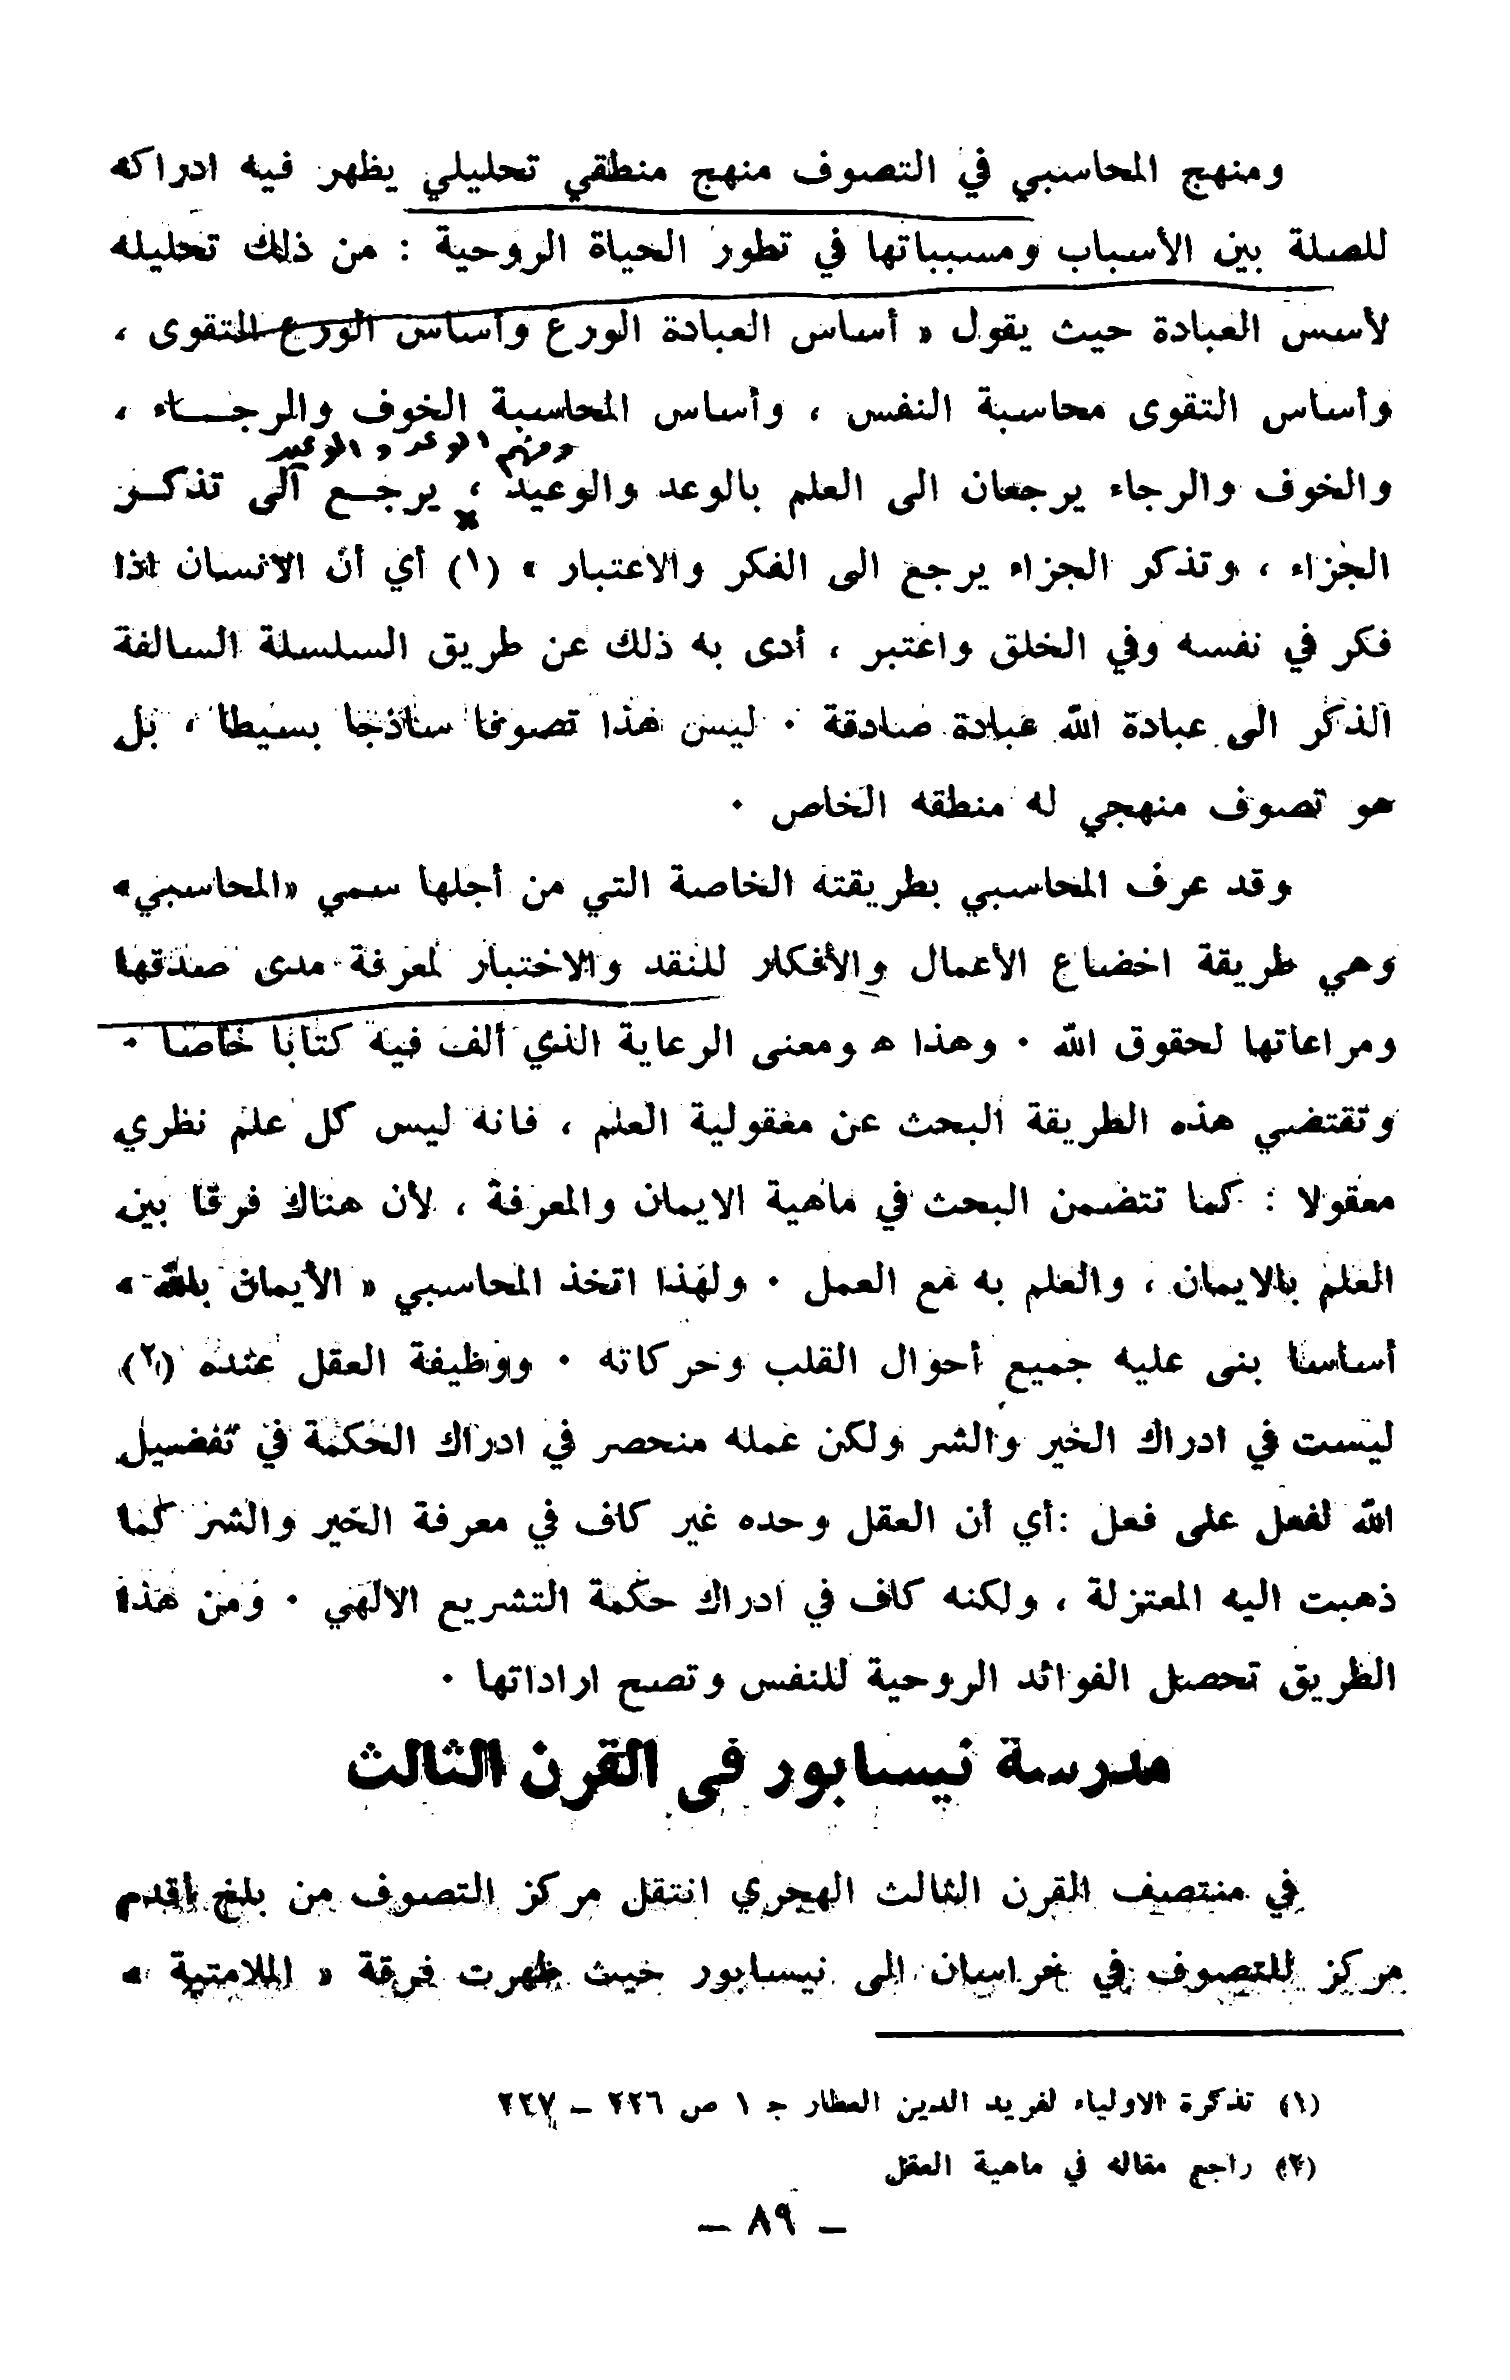 ومنهج المحاسبي في التصوف منهج منطقي تحليلي يظهر فيه ادراكه
للصلة بين الأسباب ومسبباتها في تطور الحياة الروحية : من ذلك تحليله
لأسس العبادة حيث يقول « أساس العبادة الورع وأساس الورع التقوى ،
وأساس التقوى محاسبة النفس ، وأساس المحاسبة الخوف والرجـــاء ،
وفهم الوعد والوعيد
والخوف والرجاء يرجعان الى العلم بالوعد والوعيد ، يرجـــع الى تذكـر
الجزاء ، وتذكر الجزاء يرجع الى الفكر والاعتبار » (١) أي أن الانسان اذا
فكر في نفسه وفي الخلق واعتبر ، أدى به ذلك عن طريق السلسلة السالفة
الذكر الى عبادة الله عبادة صادقة . ليس هذا تصوفا ساذجا بسيطا ، بل
هو تصوف منهجي له منطقه الخاص .
وقد عرف المحاسبي بطريقته الخاصة التي من أجلها سمي «المحاسبي»
وهي طريقة اخضاع الأعمال والأفكار للنقد والاختبار لمعرفة مدى صدقها
ومراعاتها لحقوق الله . وهذا ه ومعنى الرعاية الذي ألف فيه كتابا خاصا .
وتقتضي هذه الطريقة البحث عن معقولية العلم ، فانه ليس كل علم نظري
معقولا : كما تتضمن البحث في ماهية الايمان والمعرفة ، لأن هناك فرقا بين
العلم بالايمان ، والعلم به مع العمل . ولهذا اتخذ المحاسبي « الأيمان بالله »
أساسا بنى عليه جميع أحوال القلب وحركاته . ووظيفة العقل عنده (٢)
ليست في ادراك الخير والشر ولكن عمله منحصر في ادراك الحكمة في تفضيل
الله لفعل على فعل :أي أن العقل وحده غير كاف في معرفة الخير والشر كما
ذهبت اليه المعتزلة ، ولكنه كاف في ادراك حكمة التشريع الالهي . ومن هذا
الطريق تحصل الفوائد الروحية للنفس وتصح اراداتها .
مدرسة نيسابور في القرن الثالث
في منتصف القرن الثالث الهجري انتقل مركز التصوف من بلخ أقدم
مركز للتصوف في خراسان الى نيسابور حيث ظهرت فرقة « الملامتية »
(١) تذكرة الاولياء لفريد الدين العطار ج ١ ص ٢٢٦ – ٢٢٧
(٢) راجع مقاله في ماهية العقل
– ٨٩ –